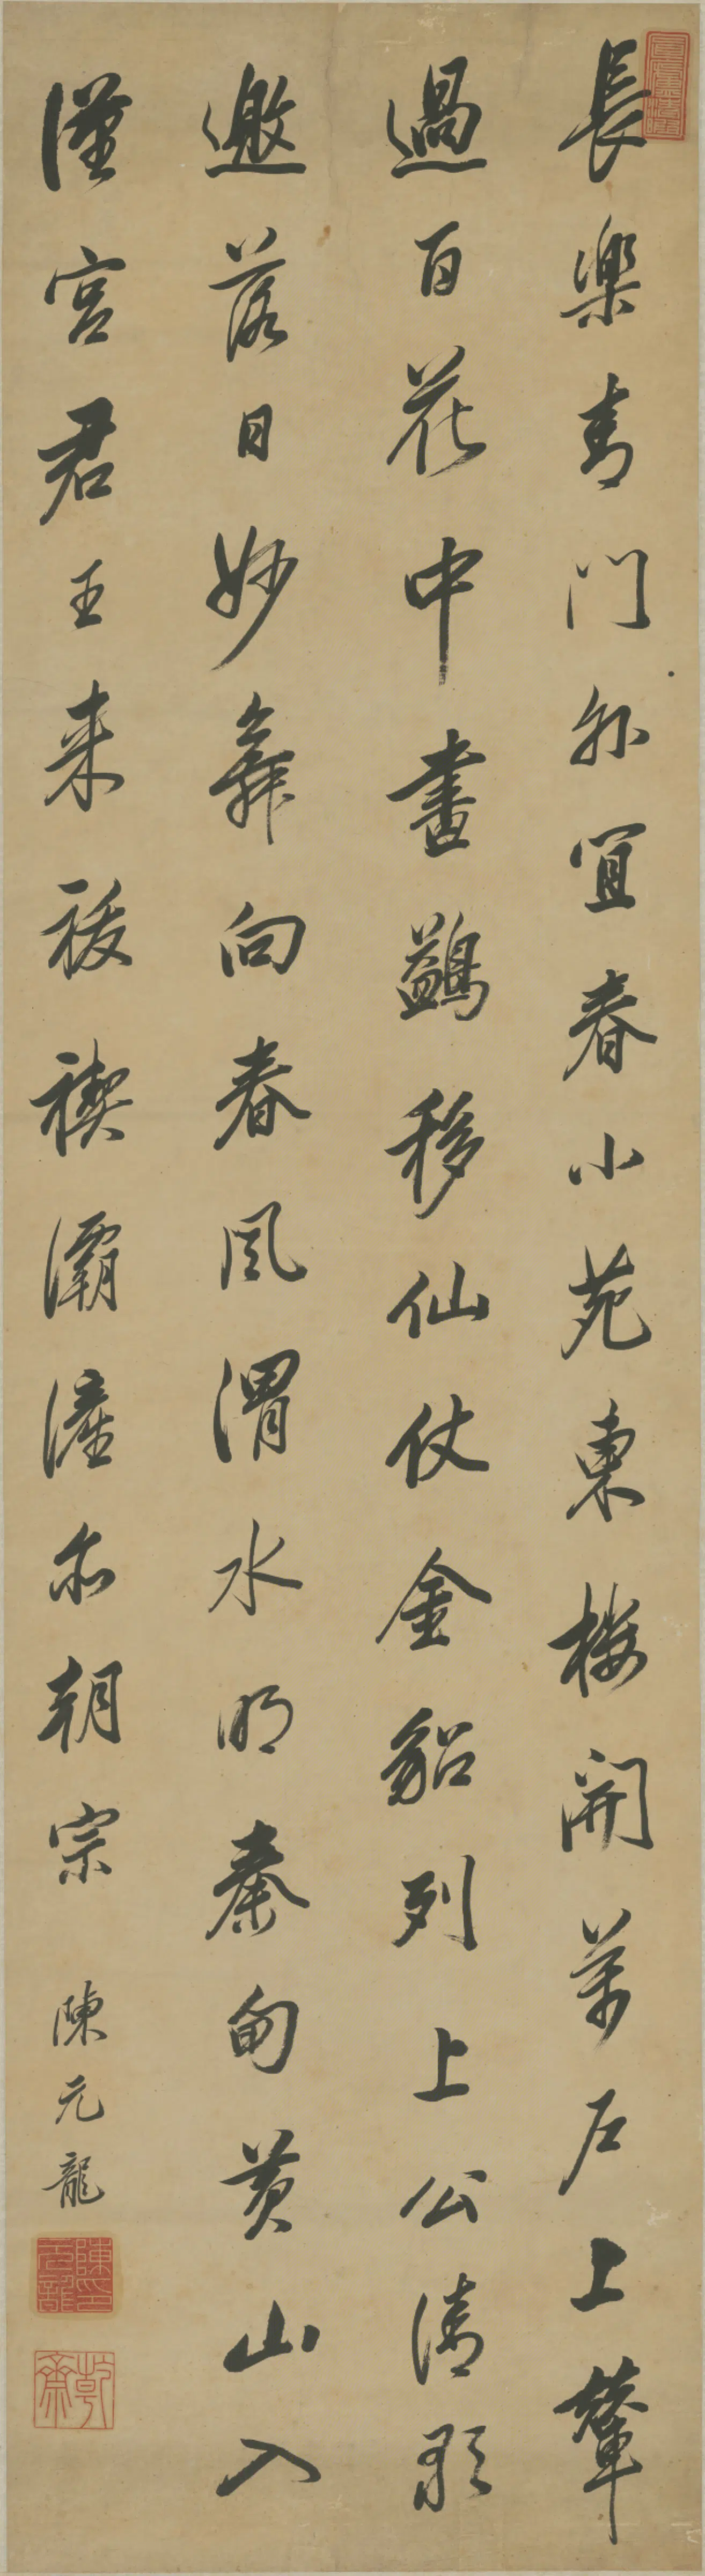 長樂青門外宜春小苑東樓開萬戶上輦
過百花中畫鷁移仙仗金貂列上公清歌
邀落日妙舞向春風渭水明秦甸黃山入
漢宮君王来祓禊灞滻亦朝宗 陳元龍
陳印元龍
乾齋